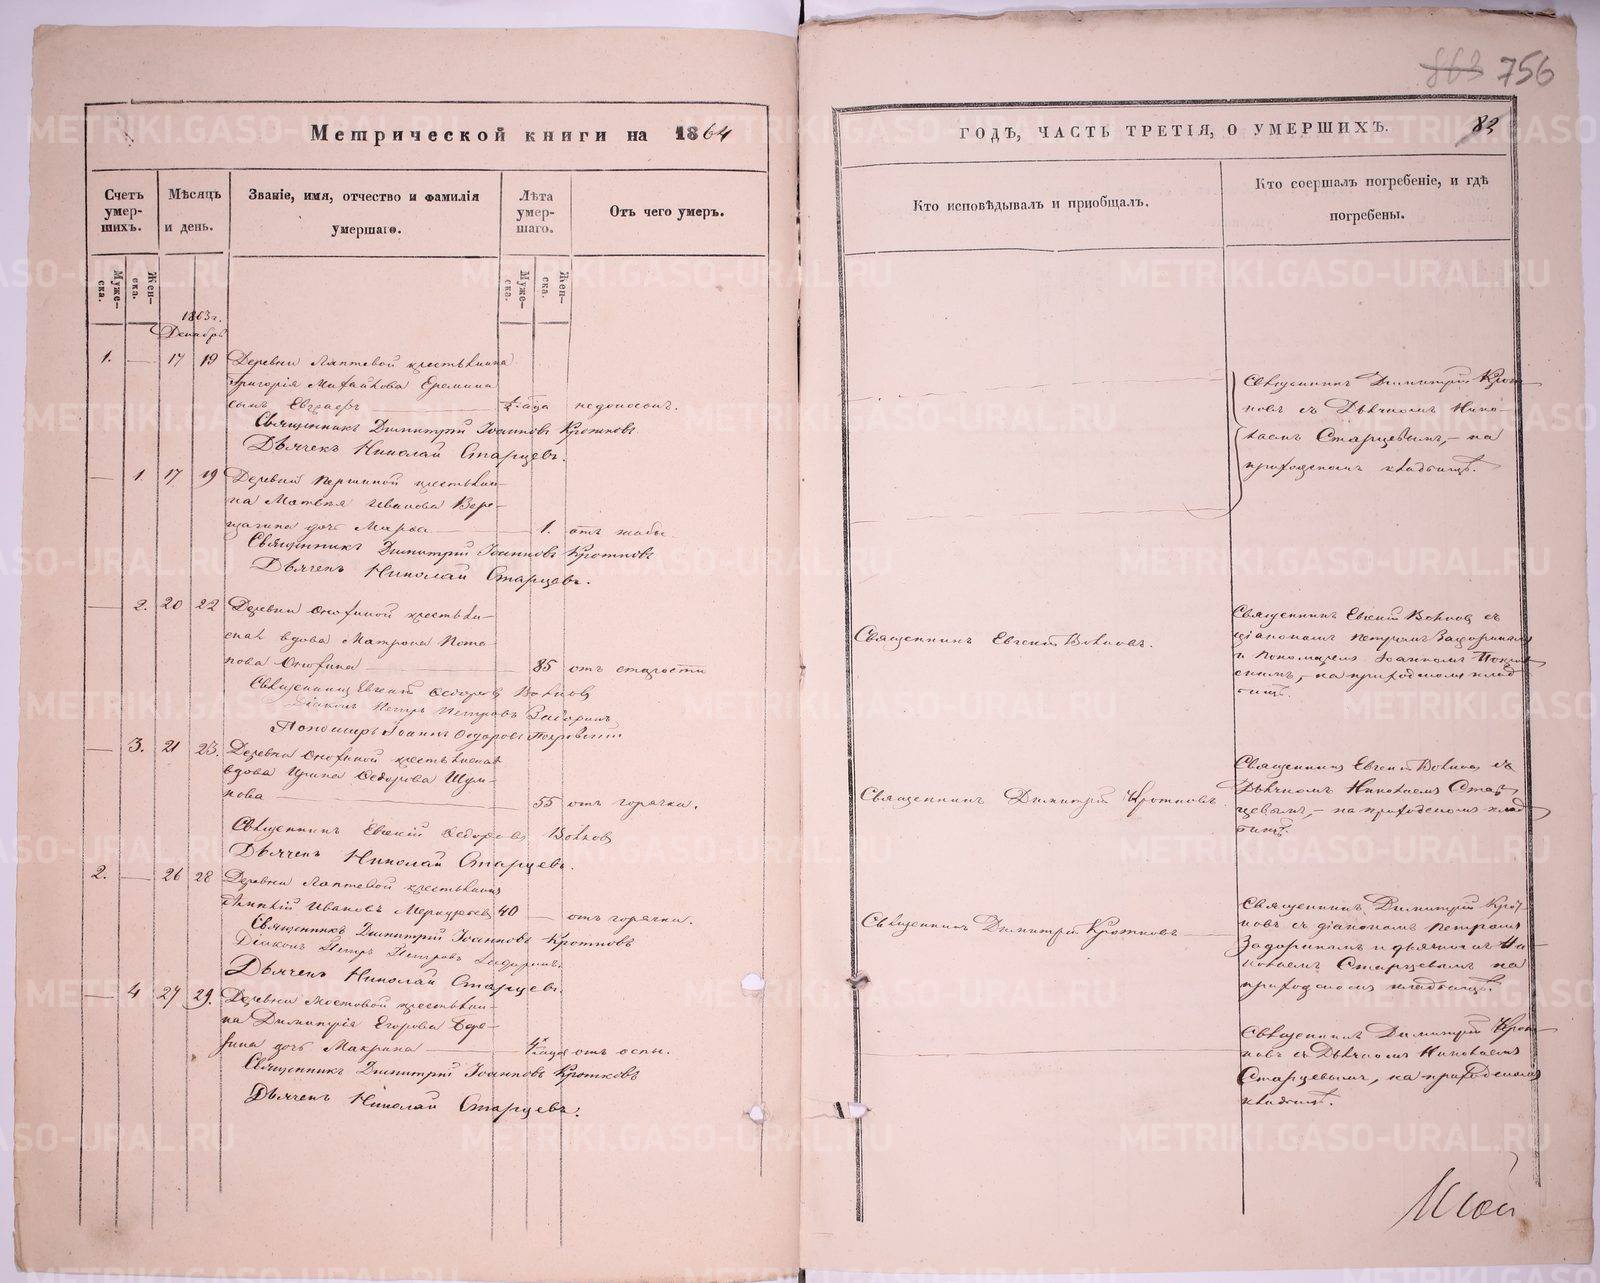 863 756
Метрической книги на 1864
годъ, часть третія, о умершихъ. 82
Счетъ умер-шихъ.
Мѣсяцъ и день.
Званіе, имя, отчество и фамилія умершаго.
Лѣта умер-шаго.
Отъ чего умеръ.
Кто исповѣдывалъ и пріобщалъ.
Кто соершалъ погребеніе, и гдѣ погребены.
Муже-ска.
Жен-ска.
Муже-ска.
Жен-ска.
1863 г.
Декабрь
1. — 17 19 Деревни Лаптевой крестьянина
Григорія Михайлова Еремина
сынъ Евграфъ года недоносокъ.
Священникъ Димитрій Іоанновъ Кротковъ
Дьячекъ Николай Старцевъ.
Священникъ Димитрій Крот-
ковъ съ Дьячкомъ Нико-
лаемъ Старцевымъ, – на
приходскомъ кладбищѣ.
— 1. 17 19 Деревни Першиной крестьяни-
на Матвея Иванова Вере-
щагина дочь Марѳа — 1. отъ жабы.
Священникъ Димитрій Іоанновъ Кротковъ
Дьячекъ Николай Старцевъ.
— 2. 20 22 Деревни Онохиной крестьян-
ская вдова Матрона Пота-
пова Онохина — 85 отъ старости
Священникъ Евгеній Ѳедоровъ Волковъ
Діаконъ Петръ Петровъ Задоринъ
Пономарь Іоаннъ Ѳедоровъ Покровскій
Священникъ Евгеній Волковъ.
Священникъ Евгеній Волковъ съ
діакономъ Петромъ Задоринымъ
и Пономаремъ Іоанномъ Покров-
скимъ, – на приходскомъ клад-
бищѣ.
— 3. 21 23. Деревни Онохиной крестьянская
вдова Ирина Ѳедорова Шум-
кова — 55 отъ горячки.
Священникъ Евгеній Ѳедоровъ Волковъ
Дьячекъ Николай Старцевъ.
Священникъ Димитрій Кротковъ
Священникъ Евгеній Волковъ съ
Дьячкомъ Николаемъ Стар-
цевымъ, – на приходскомъ клад-
бищѣ.
2. — 26 28 Деревни Лаптевой крестьянинъ
Иванъ 40 — отъ горячки.
Священникъ Димитрій Іоанновъ Кротковъ
Діаконъ Петръ Петровъ Задоринъ.
Дьячекъ Николай Старцевъ.
Священникъ Димитрій Кротковъ
Священникъ Димитрій Крот-
ковъ съ діакономъ Петромъ
Задоринымъ и дьячкомъ Ни-
колаемъ Старцевымъ на
приходскомъ кладбищѣ.
— 4 27 29. Деревни Мостовой крестьяни-
на Димитрія Егорова Бере-
зина дочь Макрина — отъ оспы.
Священникъ Димитрій Іоанновъ Кротковъ
Дьячекъ Николай Старцевъ.
Священникъ Димитрій Крот-
ковъ съ Дьячкомъ Николаемъ
Старцевымъ, на приходскомъ
кладбищѣ.
METRIKI.GASO-URAL.RU